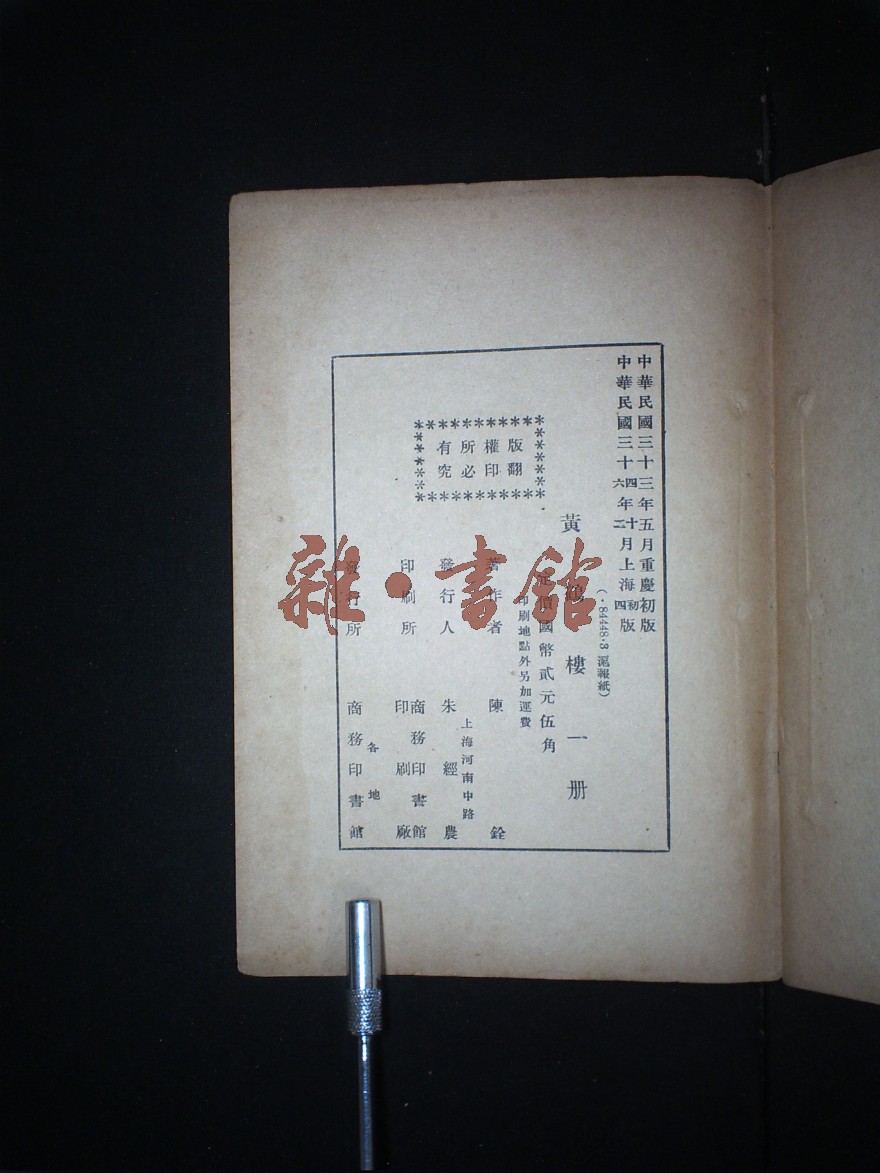 中華民國三十三年五月重慶初版
中華民國三十四年十月上海初版
六 二 四
(·84448·3 滬報紙)
黃鶴樓一册
定價國幣貳元伍角
印刷地點外另加運費
版權所有
翻印必究
著作者 陳銓
上海河南中路
發行人 朱經農
印刷所 商務印書館
印刷廠
各地
發行所 商務印書館
雜·書館